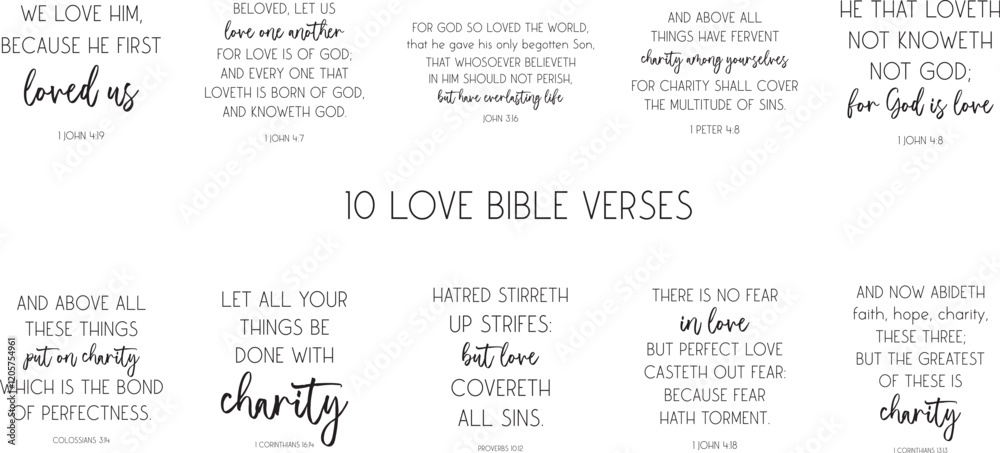 WE LOVE HIM,
BECAUSE HE FIRST
loved us
1 JOHN 4:19
BELOVED, LET US
love one another
FOR LOVE IS OF GOD;
AND EVERY ONE THAT
LOVETH IS BORN OF GOD,
AND KNOWETH GOD.
1 JOHN 4:7
FOR GOD SO LOVED THE WORLD,
that he gave his only begotten Son,
THAT WHOSOEVER BELIEVETH
IN HIM SHOULD NOT PERISH,
but have everlasting life
JOHN 3:16
AND ABOVE ALL
THINGS HAVE FERVENT
charity among yourselves
FOR CHARITY SHALL COVER
THE MULTITUDE OF SINS.
1 PETER 4:8
HE THAT LOVETH
NOT KNOWETH
NOT GOD;
for God is love
1 JOHN 4:8
10 LOVE BIBLE VERSES
AND ABOVE ALL
THESE THINGS
put on charity
WHICH IS THE BOND
OF PERFECTNESS.
COLOSSIANS 3:14
LET ALL YOUR
THINGS BE
DONE WITH
charity
1 CORINTHIANS 16:14
HATRED STIRRETH
UP STRIFES:
but love
COVERETH
ALL SINS.
PROVERBS 10:12
THERE IS NO FEAR
in love
BUT PERFECT LOVE
CASTETH OUT FEAR:
BECAUSE FEAR
HATH TORMENT.
1 JOHN 4:18
AND NOW ABIDETH
faith, hope, charity,
THESE THREE;
BUT THE GREATEST
OF THESE IS
charity
1 CORINTHIANS 13:13
Adobe Stock | #1205754961